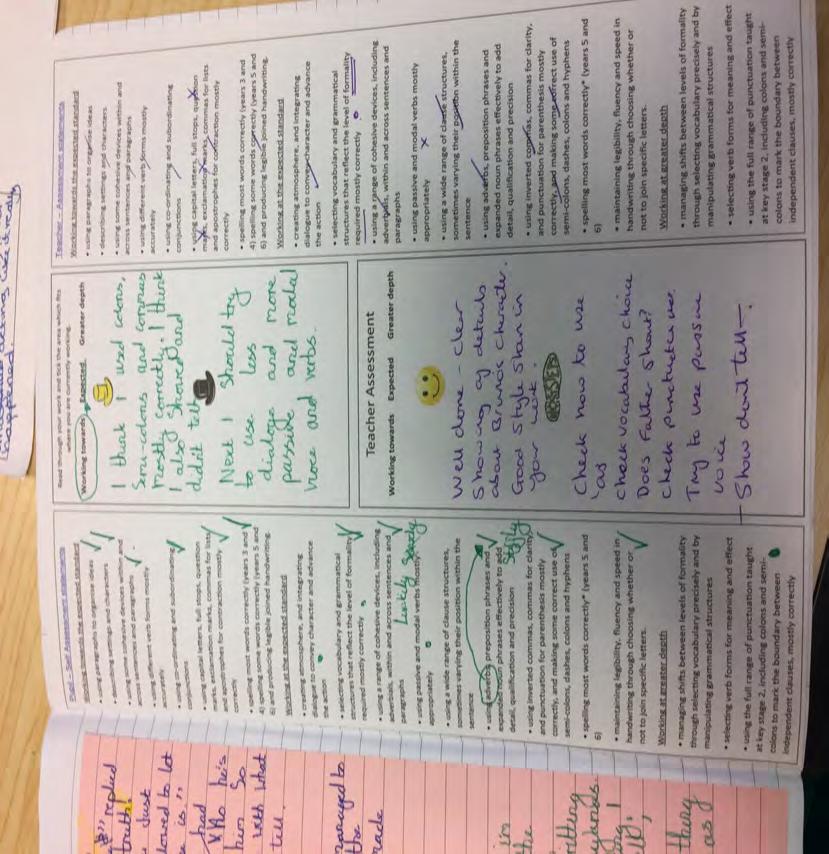 replied
truth!
Just
lowed to let
is"
had
he's
him so
with what
tell.
managed to
the
made
in
the
thing
as if
Pupil - Self Assessment statements
Working towards the expected standard
• using paragraphs to organise ideas
• describing settings and characters
• using some cohesive devices within and
across sentences and paragraphs
• using different verb forms mostly
accurately
• using co-ordinating and subordinating
conjunctions
• using capital letters, full stops, question
marks, exclamation marks, commas for lists
and apostrophes for contraction mostly
correctly
• spelling most words correctly (years 3 and
4) spelling some words correctly (years 5 and
6) and producing legible joined handwriting.
Working at the expected standard
• creating atmosphere, and integrating
dialogue to convey character and advance
the action
• selecting vocabulary and grammatical
structures that reflect the level of formality
required mostly correctly
• using a range of cohesive devices, including
adverbials, within and across sentences and
paragraphs
• using passive and modal verbs mostly
appropriately
• using a wide range of clause structures,
sometimes varying their position within the
sentence
• using adverbs, preposition phrases and
expanded noun phrases effectively to add
detail, qualification and precision
• using inverted commas, commas for clarity,
and punctuation for parenthesis mostly
correctly, and making some correct use of
semi-colons, dashes, colons and hyphens
• spelling most words correctly* (years 5 and
6)
• maintaining legibility, fluency and speed in
handwriting through choosing whether or
not to join specific letters.
Working at greater depth
• managing shifts between levels of formality
through selecting vocabulary precisely and by
manipulating grammatical structures
• selecting verb forms for meaning and effect
• using the full range of punctuation taught
at key stage 2, including colons and semi-
colons to mark the boundary between
independent clauses, mostly correctly
Read through your work and tick the area which fits
where you are currently working.
Working towards Expected Greater depth
I think I used colons,
Semi-colons and commas
mostly correctly. I think
I also Showed and
didn't tell
Next I should try
to use less
dialogue and more
passive and modal
voice and verbs.
Teacher Assessment
Working towards Expected Greater depth
Well done - clear
Showing of details
about Bruno's character.
Good style shown in
your work.
Check how to use
'as
check vocabulary choice
Does Father shout?
check punctuation use.
Try to use passive
voice
- Show don't tell -
Teacher - Assessment statements
Working towards the expected standard
• using paragraphs to organise ideas
• describing settings and characters
• using some cohesive devices within and
across sentences and paragraphs
• using different verb forms mostly
accurately
• using co-ordinating and subordinating
conjunctions
• using capital letters, full stops, question
marks, exclamation marks, commas for lists
and apostrophes for contraction mostly
correctly
• spelling most words correctly (years 3 and
4) spelling some words correctly (years 5 and
6) and producing legible joined handwriting.
Working at the expected standard
• creating atmosphere, and integrating
dialogue to convey character and advance
the action
• selecting vocabulary and grammatical
structures that reflect the level of formality
required mostly correctly
• using a range of cohesive devices, including
adverbials, within and across sentences and
paragraphs
• using passive and modal verbs mostly
appropriately
• using a wide range of clause structures,
sometimes varying their position within the
sentence
• using adverbs, preposition phrases and
expanded noun phrases effectively to add
detail, qualification and precision
• using inverted commas, commas for clarity,
and punctuation for parenthesis mostly
correctly, and making some correct use of
semi-colons, dashes, colons and hyphens
• spelling most words correctly* (years 5 and
6)
• maintaining legibility, fluency and speed in
handwriting through choosing whether or
not to join specific letters.
Working at greater depth
• managing shifts between levels of formality
through selecting vocabulary precisely and by
manipulating grammatical structures
• selecting verb forms for meaning and effect
• using the full range of punctuation taught
at key stage 2, including colons and semi-
colons to mark the boundary between
independent clauses, mostly correctly
happened.